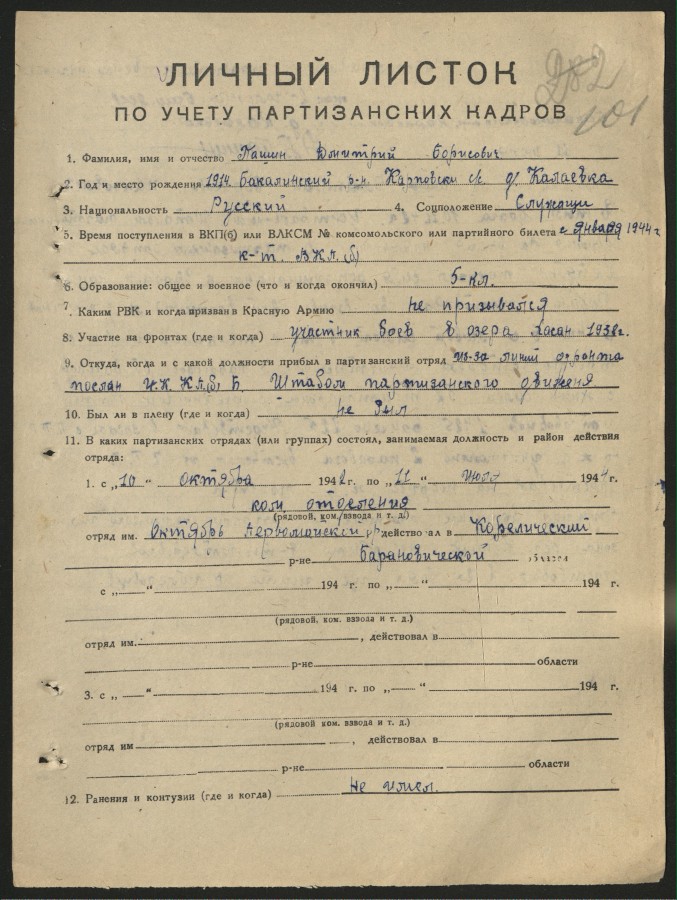 202
101
ЛИЧНЫЙ ЛИСТОК
ПО УЧЕТУ ПАРТИЗАНСКИХ КАДРОВ
1. Фамилия, имя и отчество Пашин Дмитрий Борисович
2. Год и место рождения 1914. Бакалинский р-н Карповски с/с д. Калаевка
3. Национальность Русский 4. Соцположение Служащи
5. Время поступления в ВКП(б) или ВЛКСМ № комсомольского или партийного билета с января 1944 г
к-т. ВКП(б)
6. Образование: общее и военное (что и когда окончил) 5-кл.
7. Каким РВК и когда призван в Красную Армию не призывался
8. Участие на фронтах (где и когда) участник боев в озера Хасан 1938г.
9. Откуда, когда и с какой должности прибыл в партизанский отряд из-за линий фронта
послан Ц.К. КП(б) Б. Штабом партизанского движеня
10. Был ли в плену (где и когда) не был
11. В каких партизанских отрядах (или группах) состоял, занимаемая должность и район действия
отряда:
1. с „10“ октября 1942 г. по „11“ июля 1944 г.
ком отделения
(рядовой, ком. взвода и т. д.)
отряд им. Октябрь Первомайской действовал в Корелический
р-не Барановической области
с „—“ 194 г. по „—“ 194 г.
(рядовой, ком. взвода и т. д.)
отряд им. , действовал в
р-не области
3. с „—“ 194 г. по „—“ 194 г.
(рядовой, ком. взвода и т. д.)
отряд им , действовал в
р-не области
12. Ранения и контузии (где и когда) Не имел.